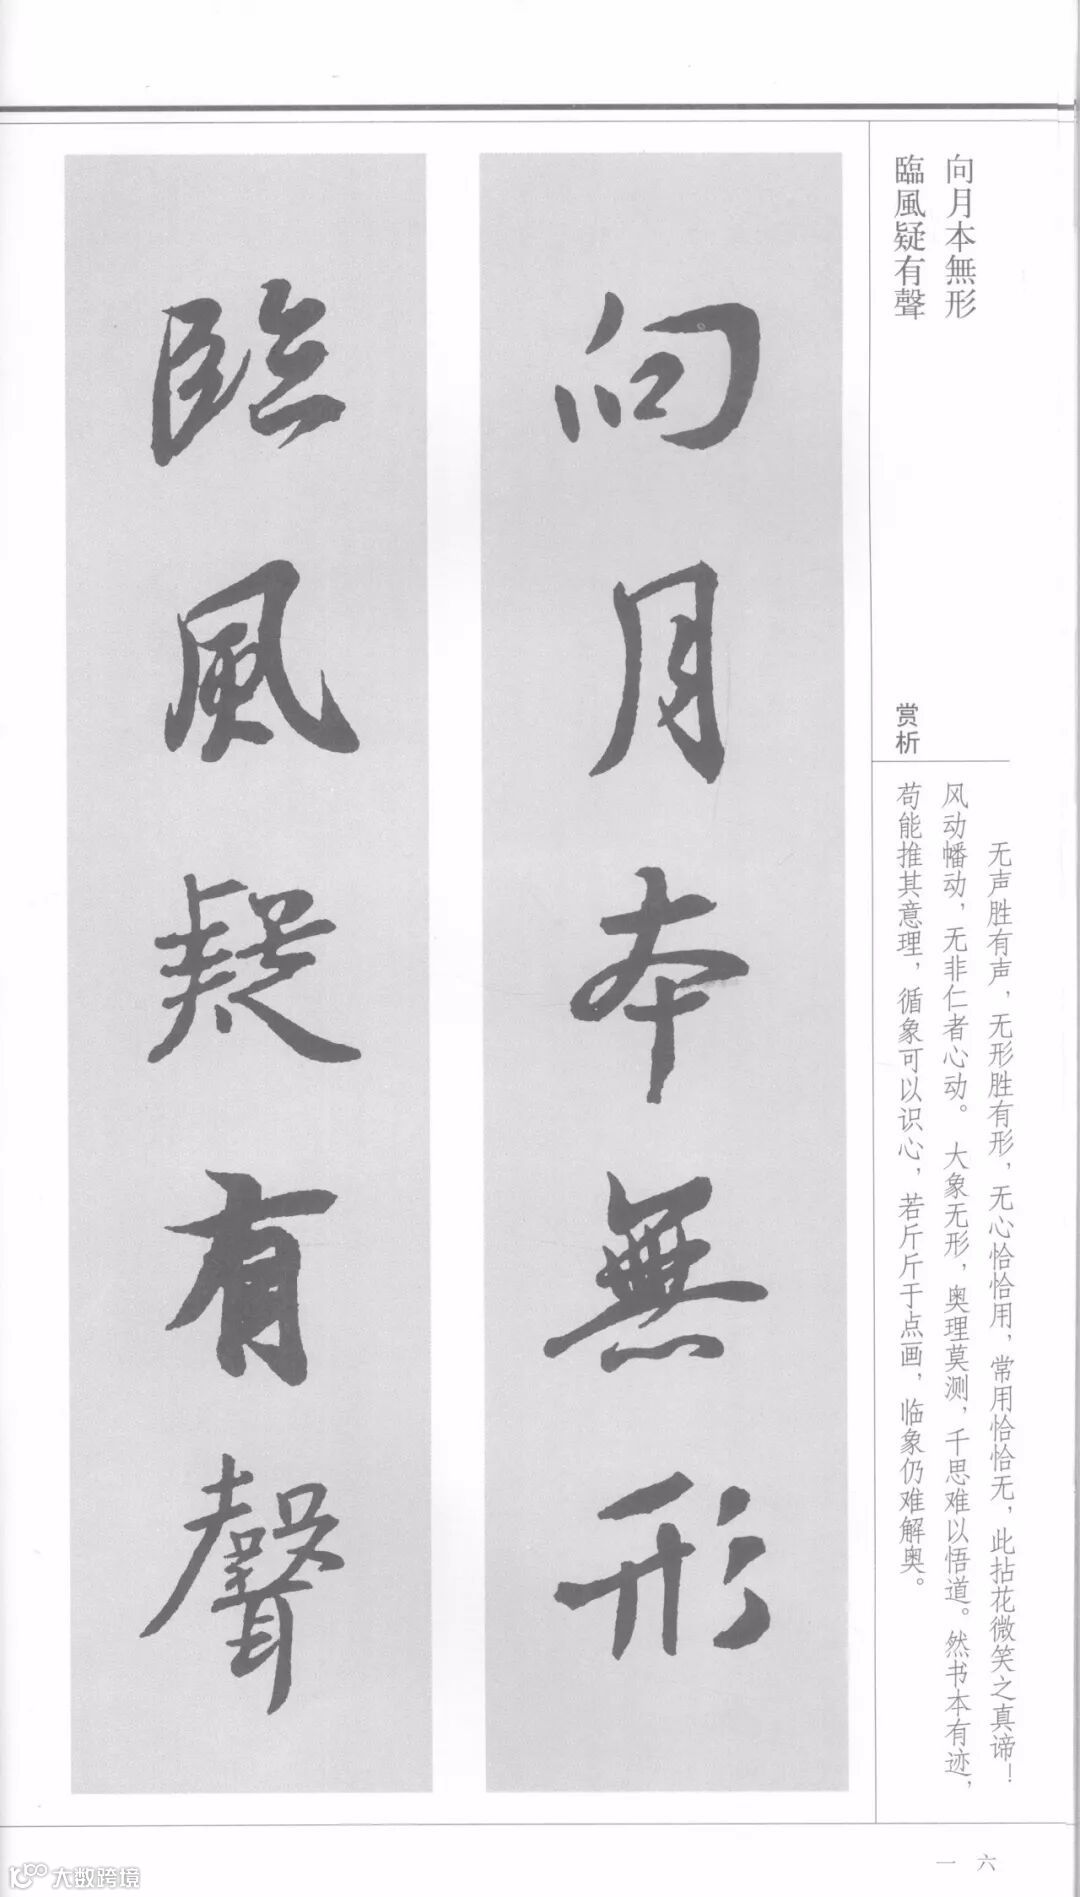 向月本無形
臨風疑有聲
赏析
无声胜有声，无形胜有形，无心恰恰用，常用恰恰无，此拈花微笑之真谛！
风动幡动，无非仁者心动。大象无形，奥理莫测，千思难以悟道。然书本有迹，
苟能推其意理，循象可以识心，若斤斤于点画，临象仍难解奥。
向月本無形
臨風疑有聲
一六
大数跨境